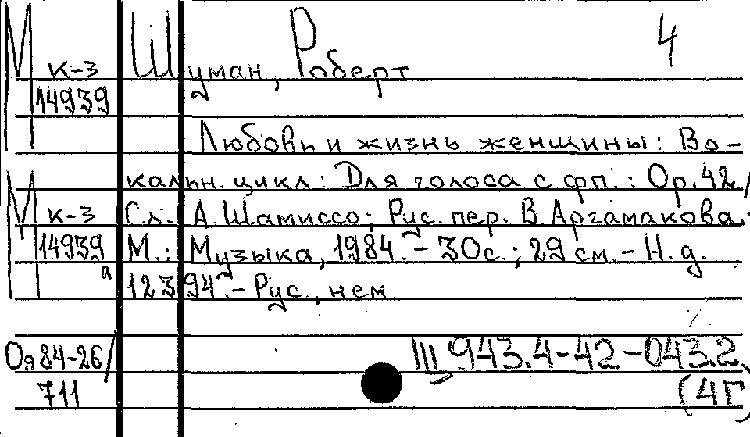 М Шуман, Роберт 4
к-3
14939
Любовь и жизнь женщины: Во-
кальн. цикл: Для голоса с фп.: Ор. 42/
М к-3 Сл. А. Шамиссо; Рус. пер. В. Аргамакова.
14939 М.: Музыка, 1984. - 30с.; 29 см. - Н. д.
д 12394. - Рус., нем
Оя84-26/ Ш 943.4-42-043.2
711 (4Г)